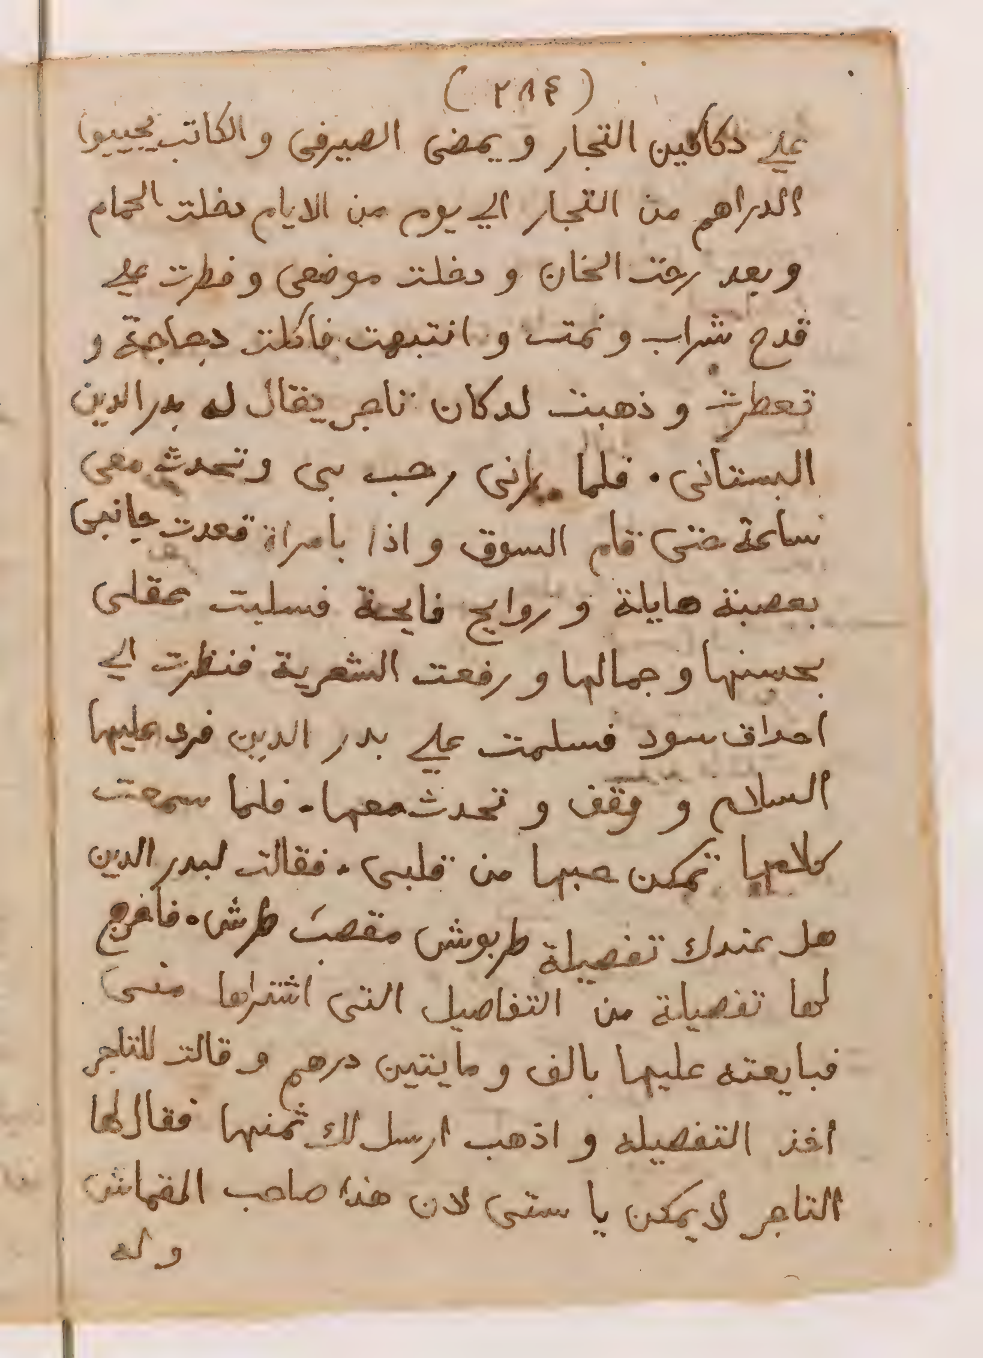 (٢٨٤)
علي دكاكين التجار و يمضى الصيرفى و الكاتب يجيبوا
الدراهم من التجار الي يوم من الايام دخلت الحمام
و بعد رحت الخان و دخلت موضعى و فطرت علي
قدح شراب و نمت و انتبهت فاكلت دجاجة و
تعطرت و ذهبت لدكان تاجر يقال له بدر الدين
البستانى . فلما رانى رحب بى و تحدث معى
ساعة حتى قام السوق و اذا بامراة قعدت جانبى
بعصبة هايلة و روايح فايحة فسلبت عقلى
بحسنها و جمالها و رفعت الشعرية فنظرت الي
احداق سود فسلمت علي بدر الدين فرد عليها
السلام و وقف و تحدث معها . فلما سمعت
كلامها تمكن حبها من قلبى . فقالت لبدر الدين
هل عندك تفصيلة طربوش مقصب طرش . فاخرج
لها تفصيلة من التفاصيل التى اشتراها منى
فبايعته عليها بالف و مايتين درهم و قالت للتاجر
اخذ التفصيله و اذهب ارسل لك ثمنها فقال لها
التاجر لا يمكن يا ستى لان هذا صاحب القماش
و له